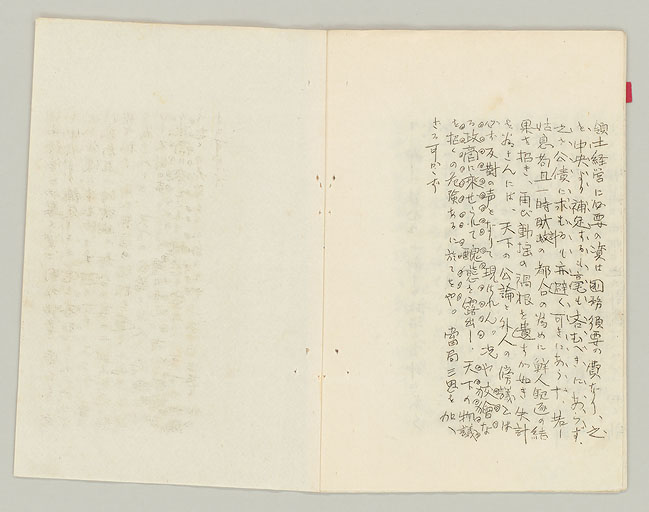 領土経営に必要の資は国防須要の費なり、之
を中央より補足するも毫も吝むべきにあらず、
之を公債に求むるも亦避く可きにあらず、若し
姑息苟且一時財政の都合の為めに鮮人駆逐の結
果を招き、再び動揺の禍根を遺すが如き失計
を為さんには、天下の公論と外人の傍議とは
必ず反対の声となりて現はれん。况や放漫な
る政商に乗せられて醜態を露出し、天下の物議
を招くの危険あるに於てをや。当局三思を加へ
ざるべからず